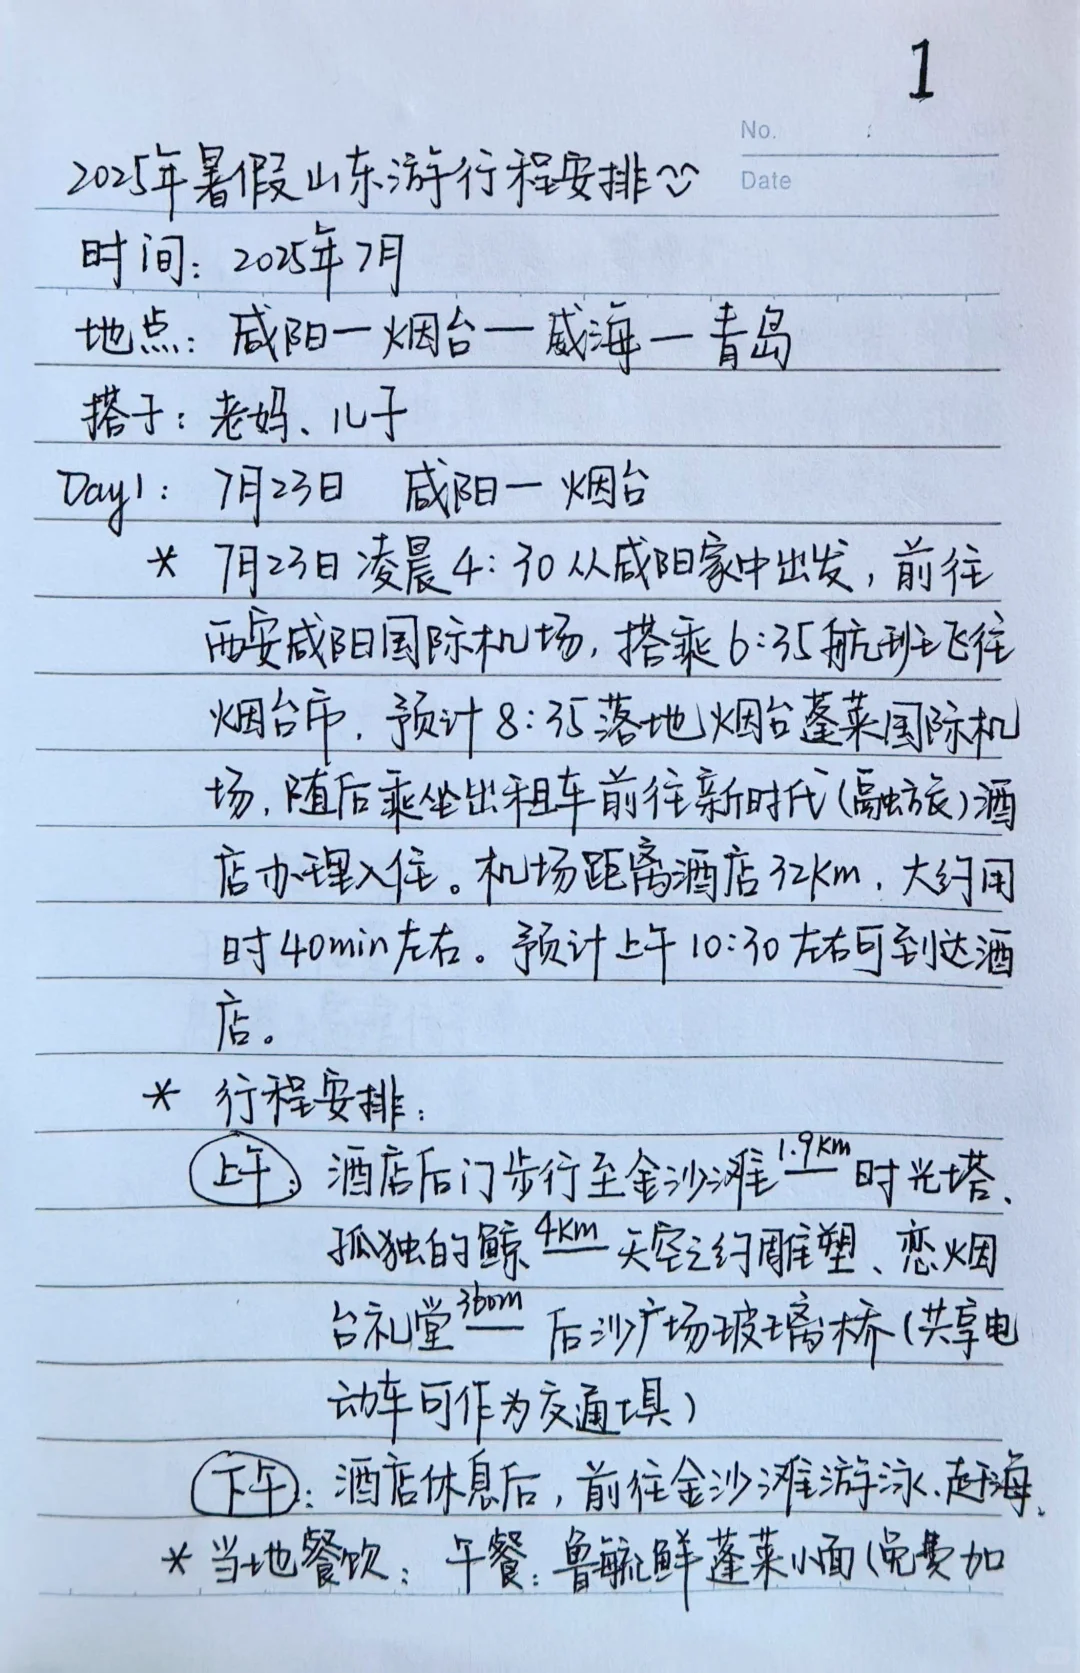 1
No. :
Date
2025年暑假山东游行程安排
时间：2025年7月
地点：咸阳—烟台—威海—青岛
搭子：老妈、儿子
Day1： 7月23日 咸阳—烟台
* 7月23日凌晨4：30从咸阳家中出发，前往
西安咸阳国际机场，搭乘6：35航班飞往
烟台市，预计8：35落地烟台蓬莱国际机
场，随后乘坐出租车前往新时代（融旅）酒
店办理入住。机场距离酒店32km，大约用
时40min左右。预计上午10：30左右可到达酒
店。
* 行程安排：
上午：酒店后门步行至金沙滩 1.9km 时光塔、
孤独的鲸 4km 天空之约雕塑、恋烟
台礼堂 360m 后沙广场玻璃桥（共享电
动车可作为交通工具）
下午：酒店休息后，前往金沙滩游泳、赶海。
* 当地餐饮：午餐：鲁毓鲜蓬莱小面（免费加